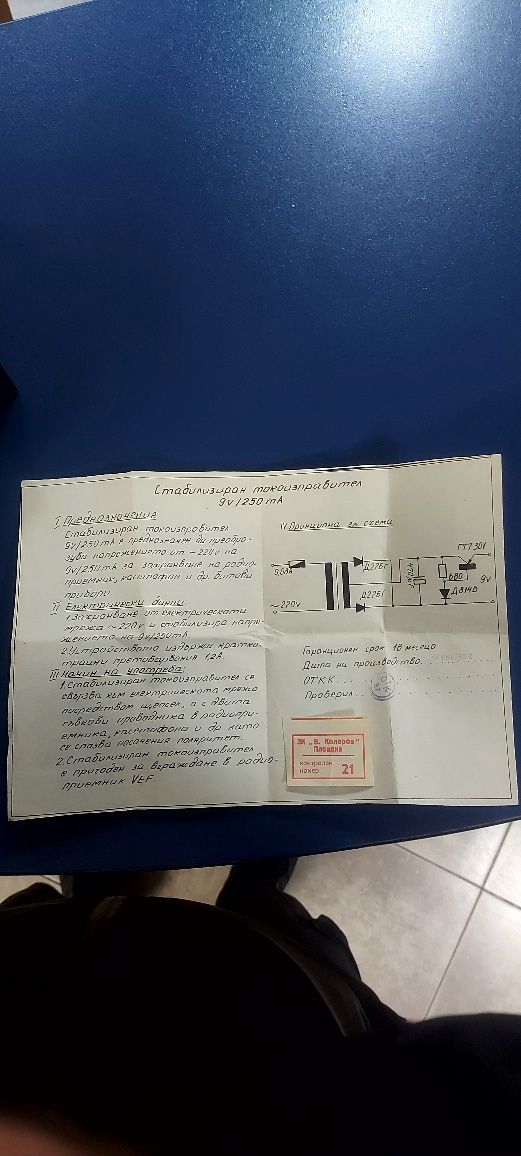 Стабилизиран токоизправител
9v/250mA
I Предназначение
Стабилизиран токоизправител
9v/250mA е предназначен да преобра-
зува напрежението от ~220v на
9v/250mA за захранване на радио-
приемник, касетофон и др. битови
прибори
II Електрически данни:
1. Захранване от електрическата
мрежа ~220v и стабилизира напре-
жението на 9v/250mA
2. Устройството издържа кратко-
трайни претоварвания 1,2A.
III Начин на употреба:
1. Стабилизиран токоизправител се
свързва към електрическата мрежа
посредством щепсел, а с двата
гъвкави проводника в радиопри-
емника, касетофона и др. като
се спазва посочения поляритет.
2. Стабилизиран токоизправител
е пригоден за вграждане в радио-
приемник VEF.
IV Принципна ел схема
~220v
Д226
Д226
680
Д814В
9v
Гаранционен срок 18 месеца
Дата на производство
ОТКК
Проверил
ЗК „В. Коларов"
Пловдив
контролен
номер 21